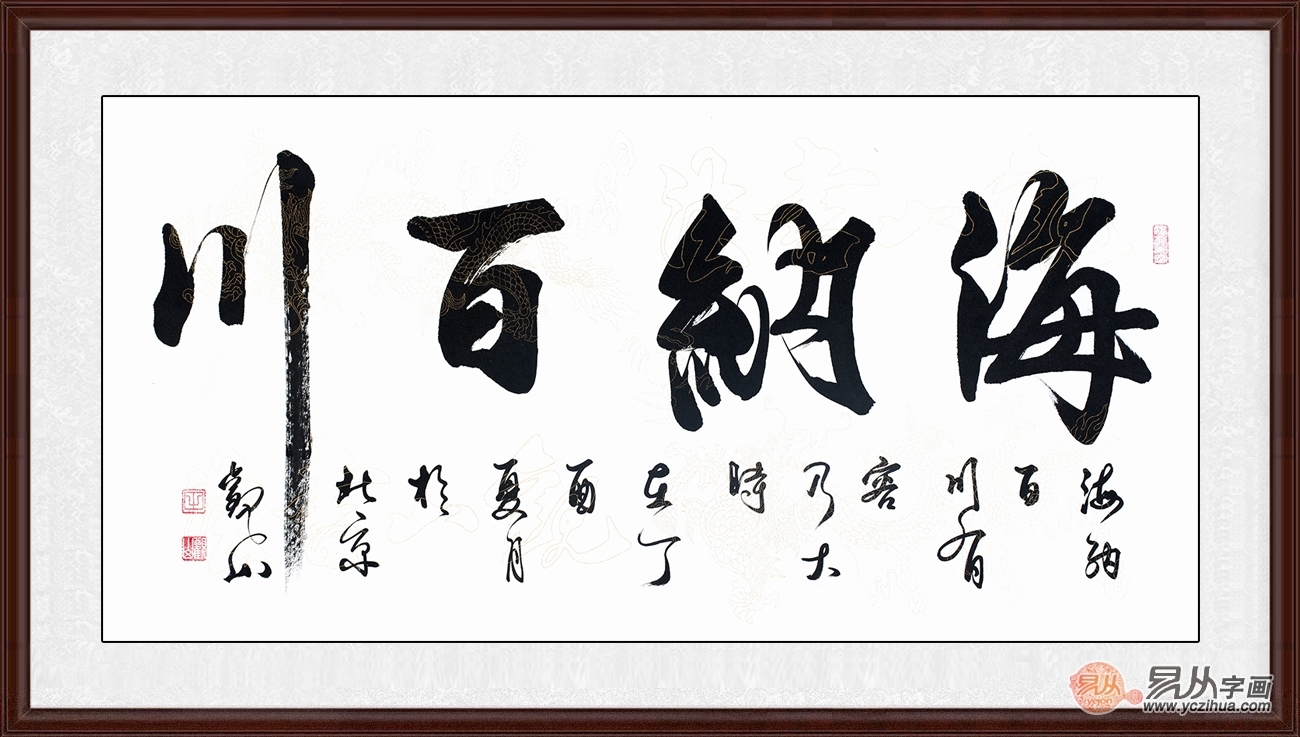 海納百川
海納百川有容乃大時在丁酉夏月於北京
觀山
易从
易从字画
www.yczihua.com